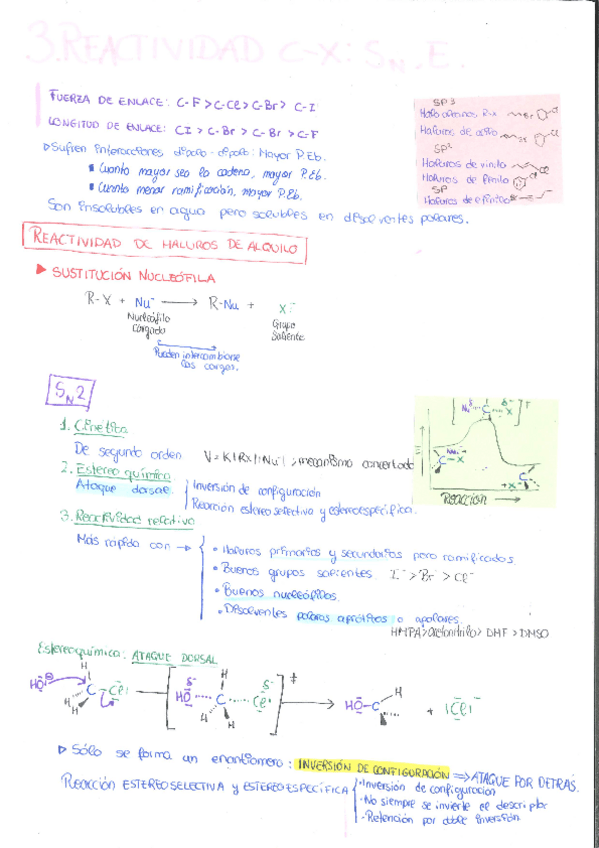 3. REACTIVIDAD C-X: SN. E.
FUERZA DE ENLACE: C-F > C-Cl > C-Br > C-I
LONGITUD DE ENLACE: CI > C-Br > C-Br > C-F
Sufren interacciones dipolo-dipolo: Mayor P.Eb.
Cuanto mayor sea la cadena, mayor P.Eb.
Cuanto menor ramificación, mayor P.Eb.
Son insolubles en agua pero solubles en disolventes polares.
SP3
Haloalcanos R-X
Haluros de alilo
SP2
Haluros de vinilo
Haluros de fenilo
SP
Haluros de etinilo
REACTIVIDAD DE HALUROS DE ALQUILO
SUSTITUCIÓN NUCLEÓFILA
R-X + Nu⁻ → R-Nu + X⁻
Nucleófilo cargado
Grupo saliente
Pueden intercambiarse las cargas.
SN2
1. Cinética
De segundo orden V = K|RX||Nu⁻| > mecanismo concertado
2. Estereoquímica
Ataque dorsal
Inversión de configuración
Reacción estereoselectiva y estereoespecífica.
Reacción
3. Reactividad relativa
Más rápida con →
Haluros primarios y secundarios poco ramificados
Buenos grupos salientes I⁻ > Br⁻ > Cl⁻
Buenos nucleófilos
Disolventes polares apróticos o apolares.
HMPA > acetonitrilo > DMF > DMSO
Estereoquímica: ATAQUE DORSAL
Sólo se forma un enantiómero: INVERSIÓN DE CONFIGURACIÓN ⇒ ATAQUE POR DETRÁS.
REACCIÓN ESTEREOSELECTIVA Y ESTEREOESPECÍFICA
Inversión de configuración
No siempre se invierte el descriptor
Retención por doble inversión